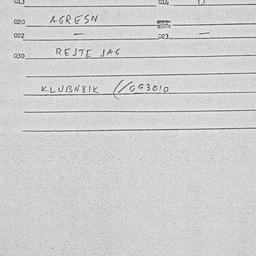 013 014
020 AGRESN
022 — 023 —
030 REJTE JAG
KLUBN81K //093010